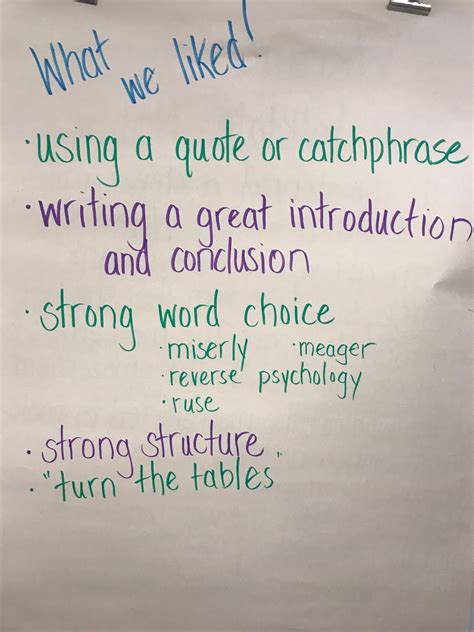 What we liked!
·using a quote or catchphrase
·writing a great introduction
and conclusion
·strong word choice
·miserly ·meager
·reverse psychology
·ruse
·strong structure
·"turn the tables"